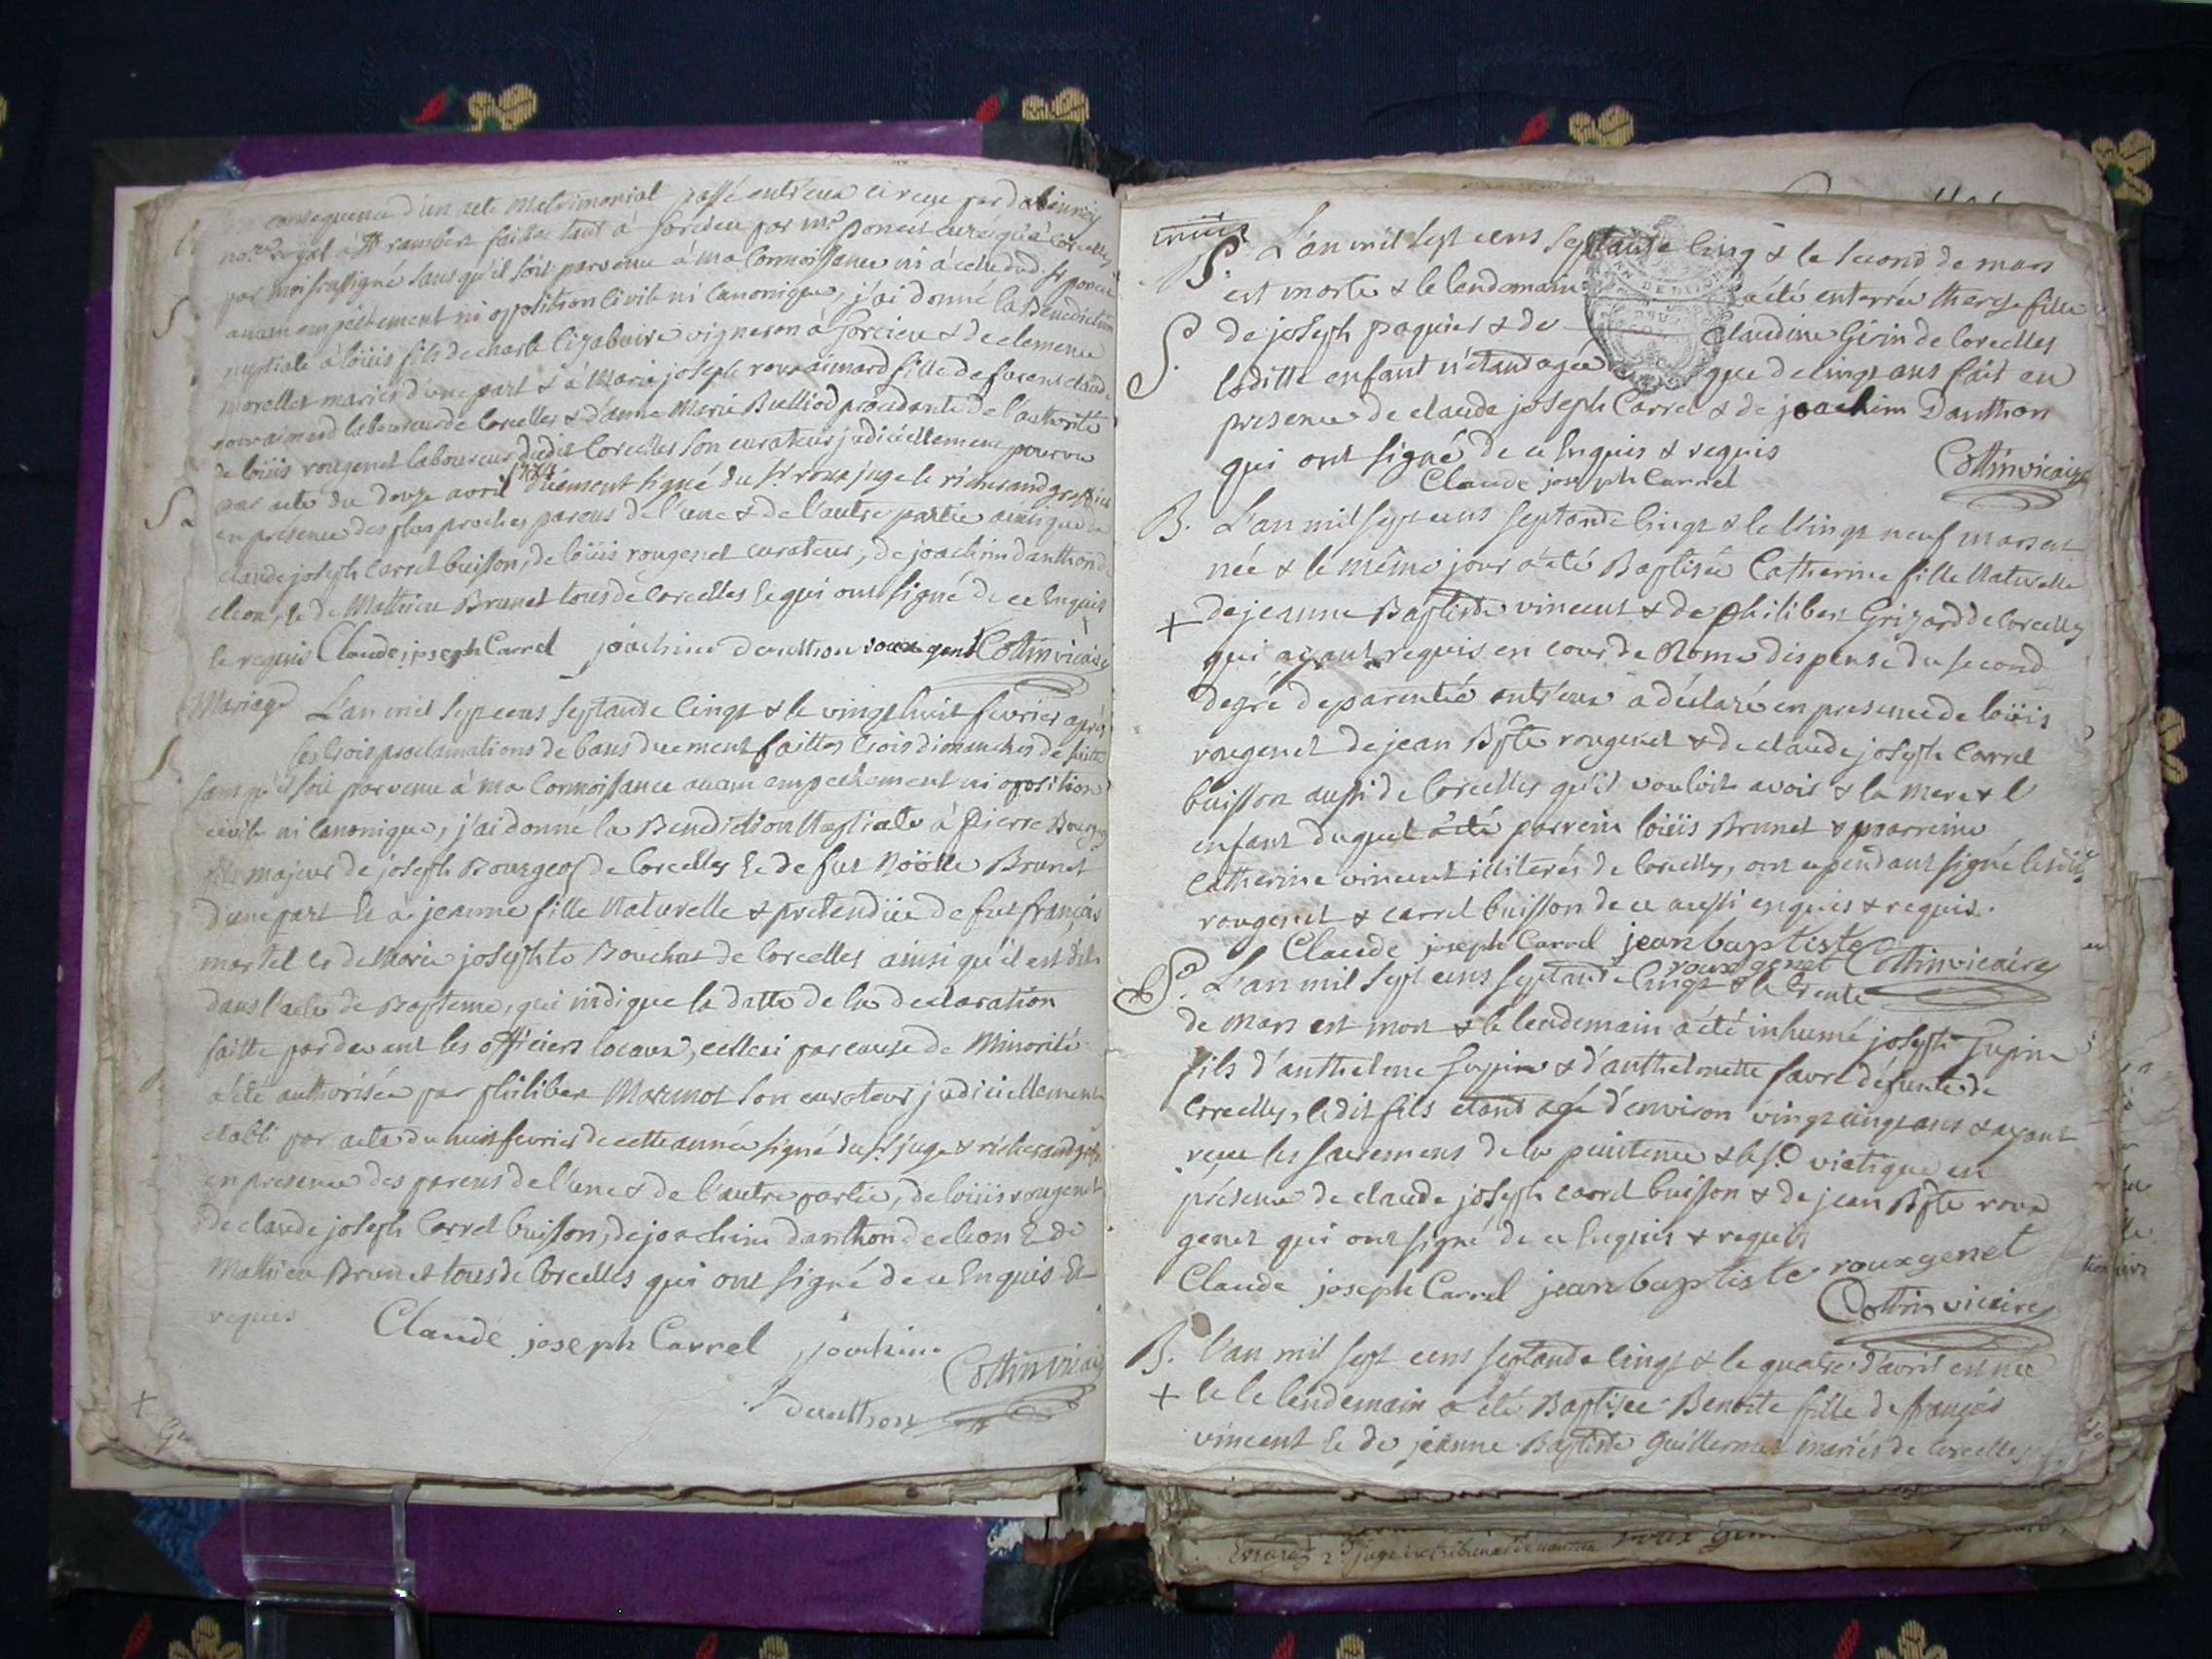 consequence d'un acte Matrimonial passé entr'eux et reçu par
royal à St rambert faittes tant à Sorcieu par mr poncet curé qu'à Corcelles
par moi soussigné sans qu'il soit parvenu à ma Connoissance ni à celle dud. Sr poncet
aucun empêchement ni opposition Civile ni Canonique, j'ai donné la Benediction
nuptiale à loüis fils de charle vigneron à Sorcieu & de clemence
morellet mariés d'une part & à Marie joseph rouxaimard fille de
rouxaimard laboureur de Corcelles & d'anne Marie Bulliod procedante de l'authorité
de loüis rougenet laboureur dudit Corcelles son curateur judiciellement pourvu
par acte du douze avril 1774 düement signé du Sr roux juge le richerand greffier
en présence des plus proches parens de l'une & de l'autre partie ainsi que de
claude joseph Carrel buisson, de loüis rougenet curateur, de joachim danthon de
cleon, & de Mathieu Brunet tous de Corcelles & qui ont signé de ce Enquis
& requis Claude joseph Carrel joachim danthon rouxgenet Cottin vicaire
Mariage L'an mil sept cens septante Cinq & le vingt huit fevrier après
les trois proclamations de bans duement faittes trois dimanches de suitte
sans qu'il soit parvenu à ma Connoissance aucun empechement ni oposition
civile ni Canonique, j'ai donné la Benediction Nuptiale à Pierre Bourgeos
fils majeur de joseph Bourgeos de Corcelles & de fut Nöölle Brunet
d'une part & à jeanne fille Naturelle & pretendüe de fut françois
martel & de Marie josephte Bouchat de Corcelles ainsi qu'il est dit
dans l'acte de Bapteme, qui indique la datte de la declaration
faitte pardevant les officiers locaux, celleci par cause de Minorité
a été authorisée par philibert Marmot son curateur judiciellement
etabli par acte du huit fevrier de cette année signé du Sr juge & richerand
en presence des parens de l'une & de l'autre partie, de loüis rougenet
de claude joseph Carrel buisson, de joachim danthon de cleon & de
Mathieu Brunet tous de Corcelles qui ont signé de ce Enquis &
requis Claude joseph Carrel joachim
danthon Cottin vicaire
S. L'an mil sept cens septante Cinq & le second de mars
est morte & le landemain a été enterrée therese fille
de joseph paquier & de Claudine Girin de Corcelles
laditte enfant n'étant agée que de cinq ans fait en
presence de claude joseph Carrel & de joachim Danthon
qui ont signé de ce Enquis & requis
Claude joseph Carrel Cottin vicaire
B. L'an mil sept cens septante Cinq & le Vingt neuf mars est
née & le même jour a été Baptisée Catherine fille Naturelle
+ de jeanne Baptiste vincent & de philibert Grizard de Corcelles
qui ayant requis en cour de Rome dispense du second
degré de parentée entr'eux a déclaré en presence de loüis
rougenet de jean Bpte rougenet & de claude joseph Carrel
buisson aussi de Corcelles qu'il vouloit avoir & la mere & l'
enfant duquel a été parrein loüis Brunet & marreine
Catherine vincent illiterés de Corcelles, ont cependant signé lesdits
rougenet & carrel buisson de ce aussi enquis & requis.
Claude joseph Carrel jean baptiste
rouxgenet Cottin vicaire
S. L'an mil sept cens septante Cinq & le trente
de mars est mort & le lendemain a été inhumé joseph Jupin
fils d'anthelme Jupin & d'anthelmette favre défunte de
Corcelles, ledit fils etant agé d'environ vingt cinq ans & ayant
reçu les sacremens de la penitence & le st viatique en
présence de claude joseph carrel buisson & de jean Bpte roux
genet qui ont signé de ce Enquis & requis
Claude joseph Carrel jean baptiste rouxgenet
Cottin vicaire
B. l'an mil sept cens septante Cinq & le quatre d'avril est née
+ & le lendemain a été Baptisée Benoite fille de françois
vincent & de jeanne Baptiste Guillermet mariés de Corcelles